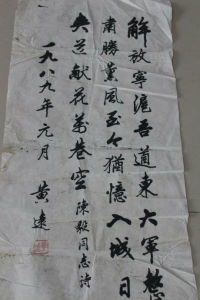 解放寧滬吾道東大軍整
肅勝薰風至今猶憶入城日
夾道献花萬巷空 陳毅同志詩
一九八九年元月 黄遠